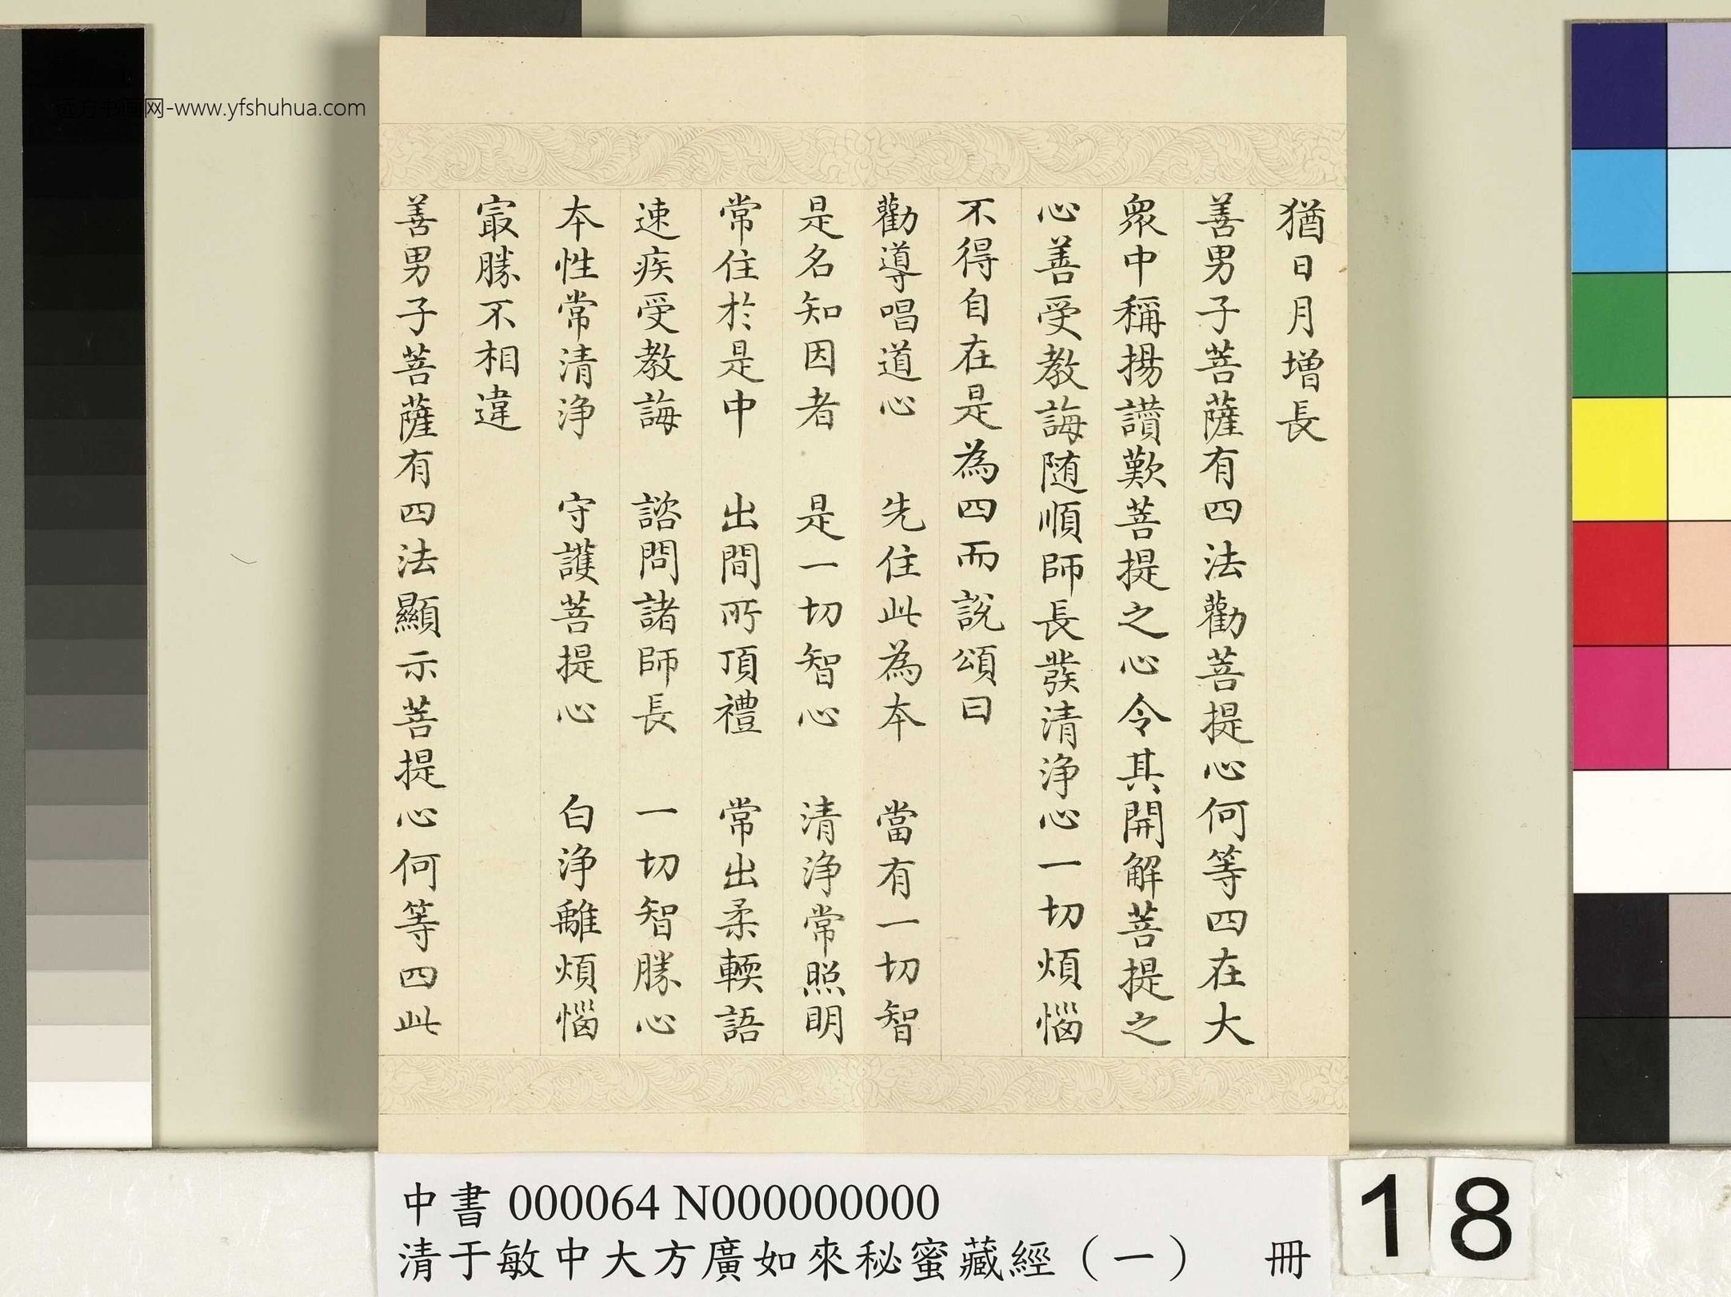 猶日月增長
善男子菩薩有四法勸菩提心何等四在大
衆中稱揚讚歎菩提之心令其開解菩提之
心善受教誨随順師長發清淨心一切煩惱
不得自在是為四而說頌曰
勸導唱道心 先住此為本 當有一切智
是名知因者 是一切智心 清淨常照明
常住於是中 出間所頂禮 常出柔輭語
速疾受教誨 諮問諸師長 一切智勝心
本性常清淨 守護菩提心 白淨離煩惱
冣勝不相違
善男子菩薩有四法顯示菩提心何等四此
中書 000064 N000000000
清于敏中大方廣如來秘蜜藏經（一） 冊
18
网-www.yfshuhua.com